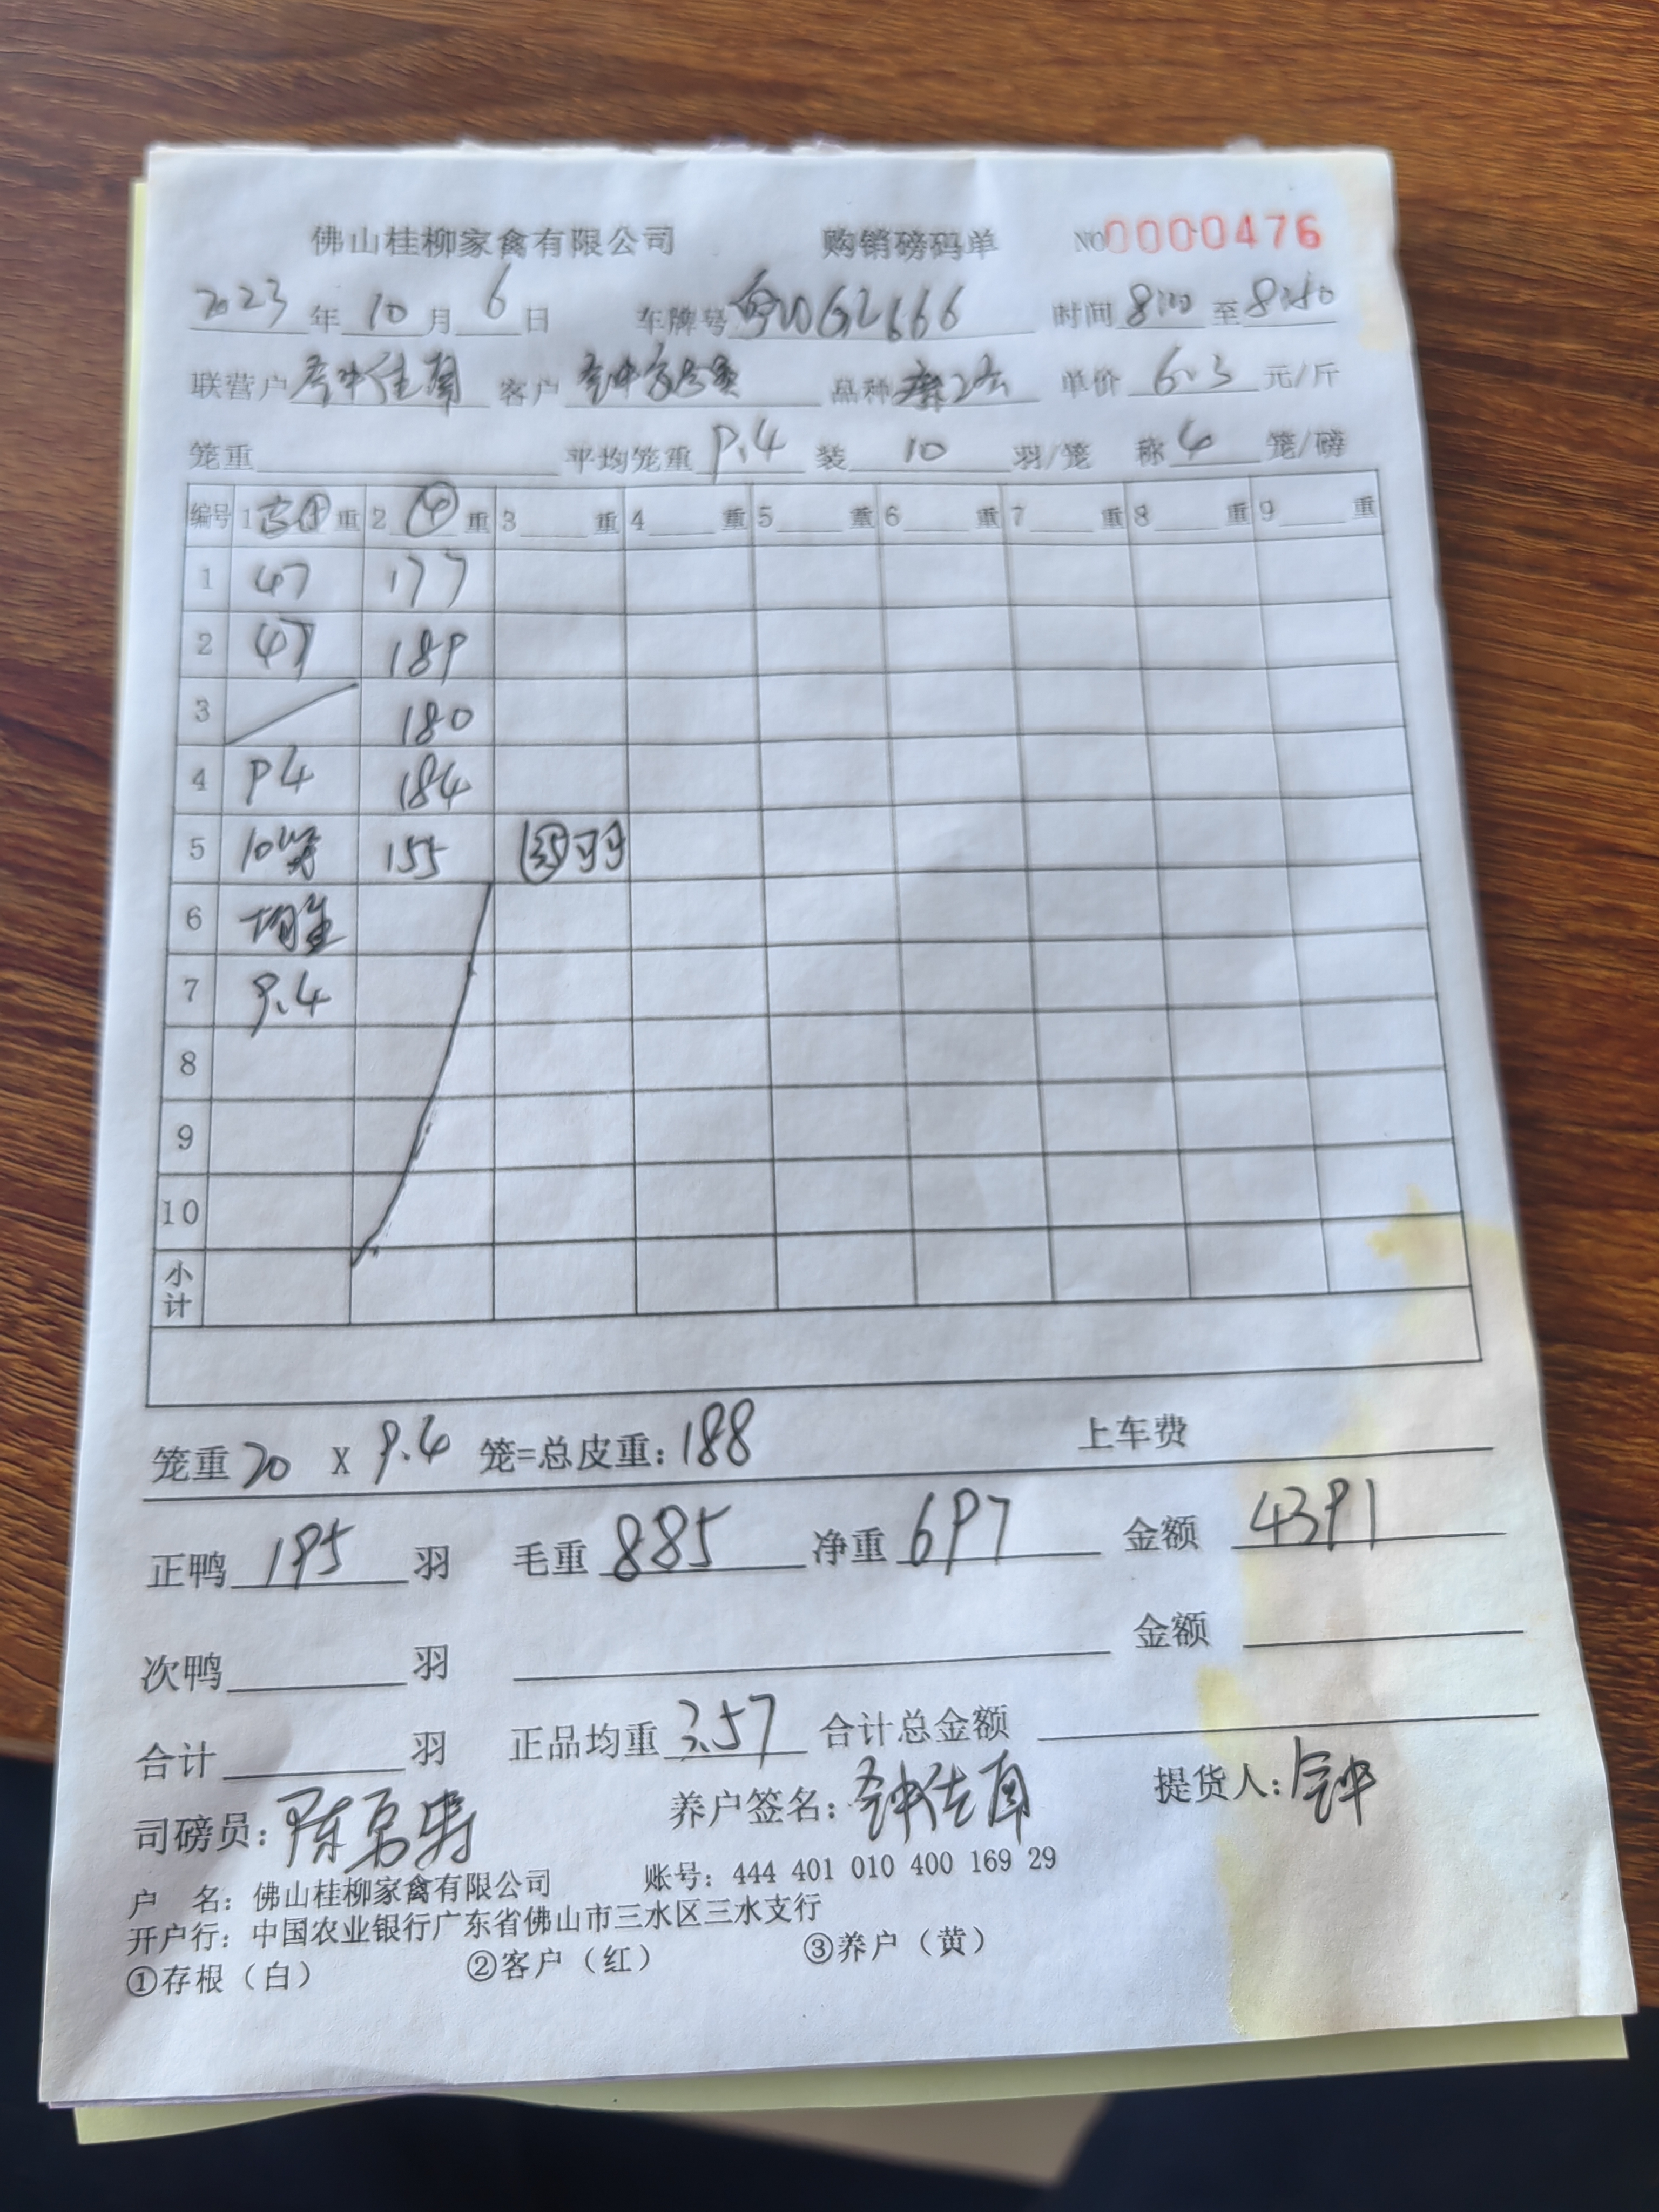 佛山桂柳家禽有限公司 购销磅码单 NO0000476
2023年10月6日 车牌号 G2666 时间8:00至8:40
联营户 客户 品种 单价6.3元/斤
笼重 平均笼重9.4装10羽/笼 称4笼/磅
编号 1 重 2 ④ 重 3 重 4 重 5 重 6 重 7 重 8 重 9 重
1 47 177
2 47 189
3 180
4 94 184
5 10 155 羽
6 均重
7 9.4
8
9
10
小计
笼重20 X 9.4笼=总皮重:188 上车费
正鸭195羽 毛重885净重697 金额4391
次鸭 羽 金额
合计 羽 正品均重3.57合计总金额
司磅员:陈 养户签名:钟 提货人:钟
户 名:佛山桂柳家禽有限公司 账号:444 401 010 400 169 29
开户行:中国农业银行广东省佛山市三水区三水支行
①存根(白) ②客户(红) ③养户(黄)